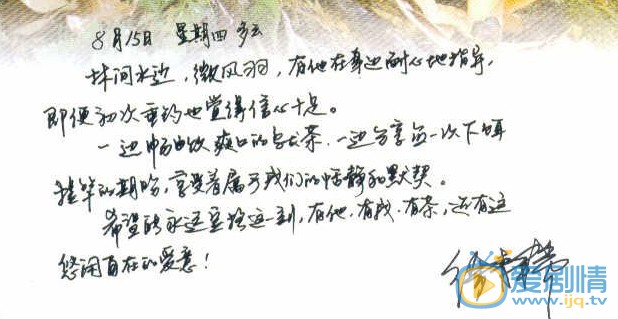 8月15日 星期四 多云
林间水边,微风羽,有他在身边耐心地指导,
即便初次垂钓也觉得信心十足。
一边畅饮爽口的乌龙茶,一边分享每一次下饵
挂竿的期盼,享受着属于我们的恬静和默契。
希望能永远享受这一刻,有他、有我、有茶,还有这
悠闲自在的爱意!
爱剧情
www.ijq.tv